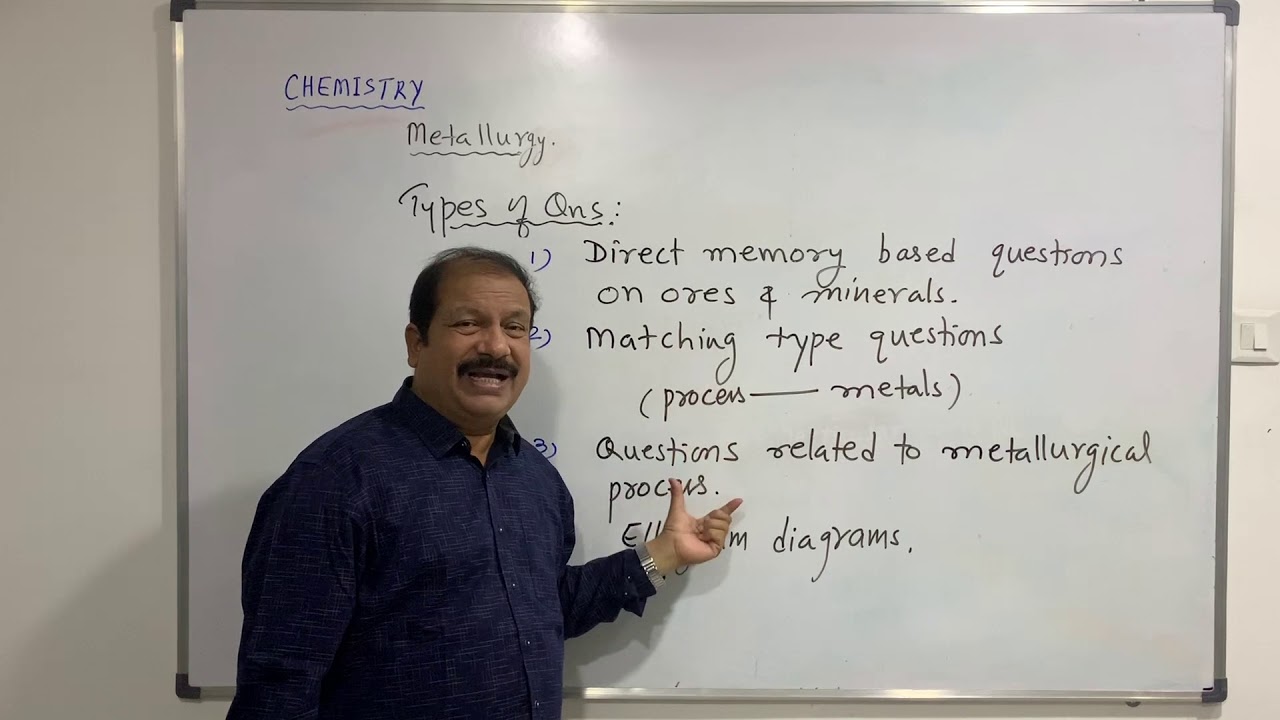 CHEMISTRY
Metallurgy.
Types of Qns:
1) Direct memory based questions
on ores & minerals.
2) Matching type questions
(process — metals)
3) Questions related to metallurgical
process.
diagrams.